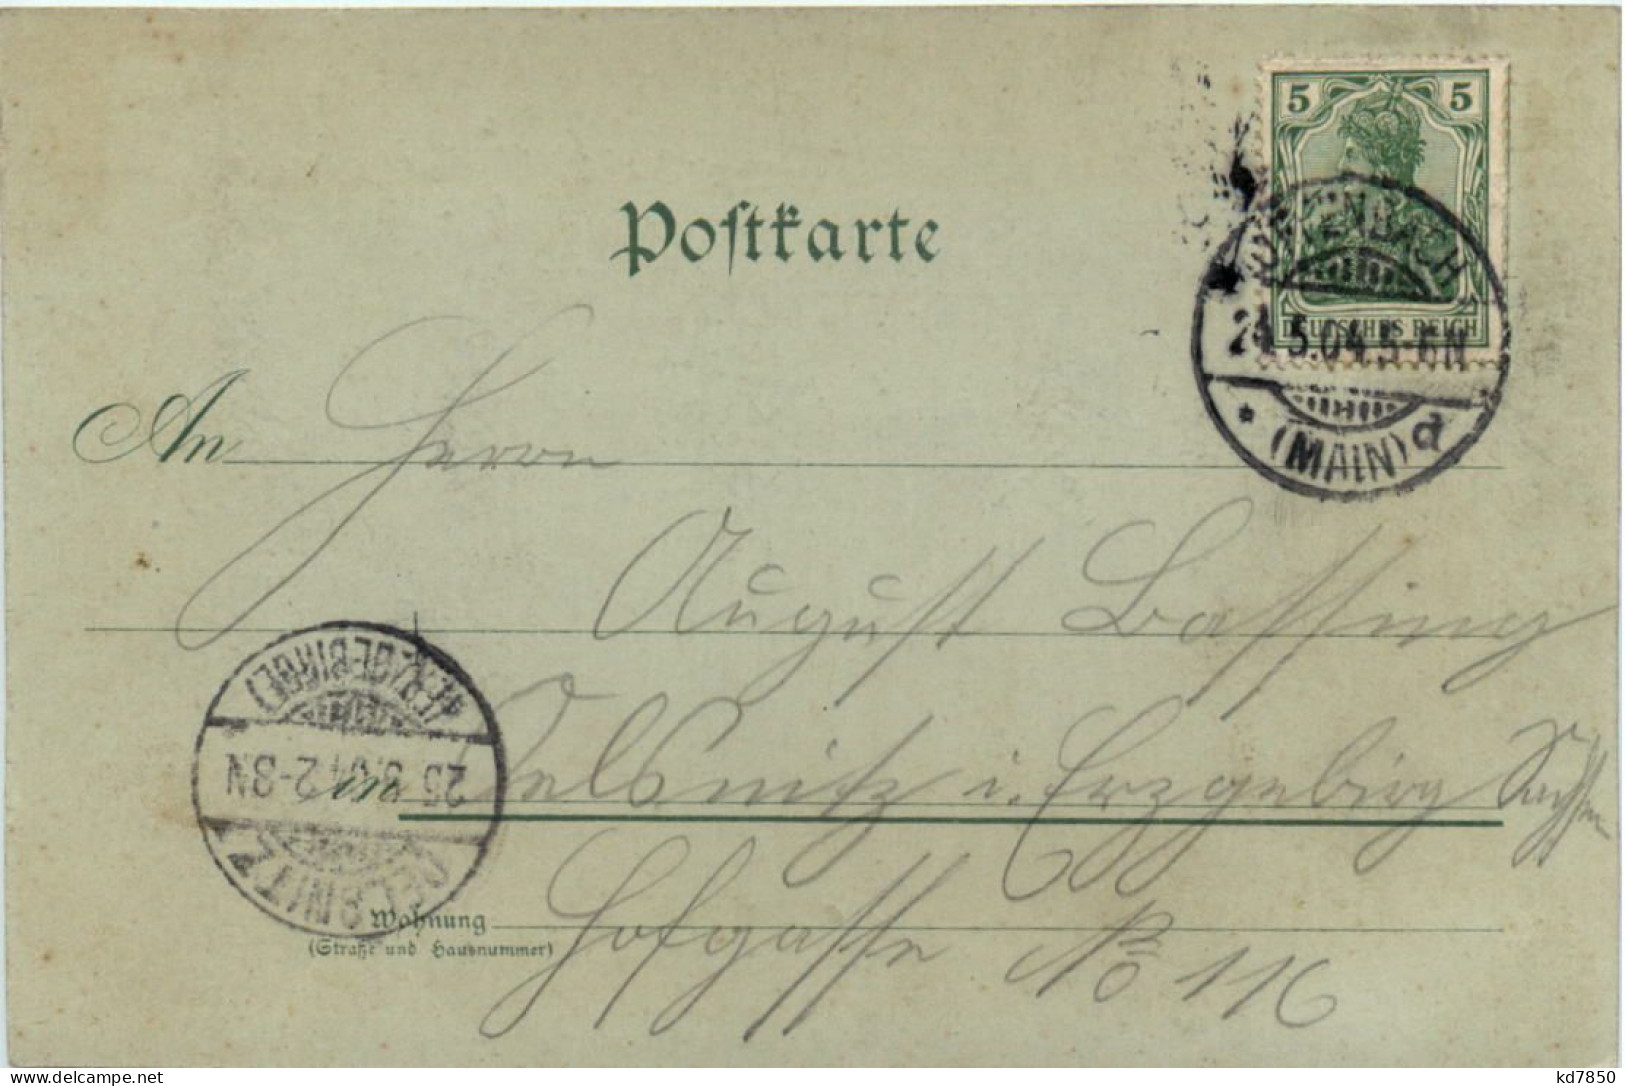 5 5
Postkarte
OFFENBACH
DEUTSCHES REICH
24.5.04.5-6N
(MAIN) d
An Herrn
August Bassing
(ERZGEBIRGE)
25.5.04 2-3N
OELSNITZ
in Oelsnitz i. Erzgebirg Sachsen
Wohnung Hofgasse No 116
(Straße und Hausnummer)
www.delcampe.net
kd7850